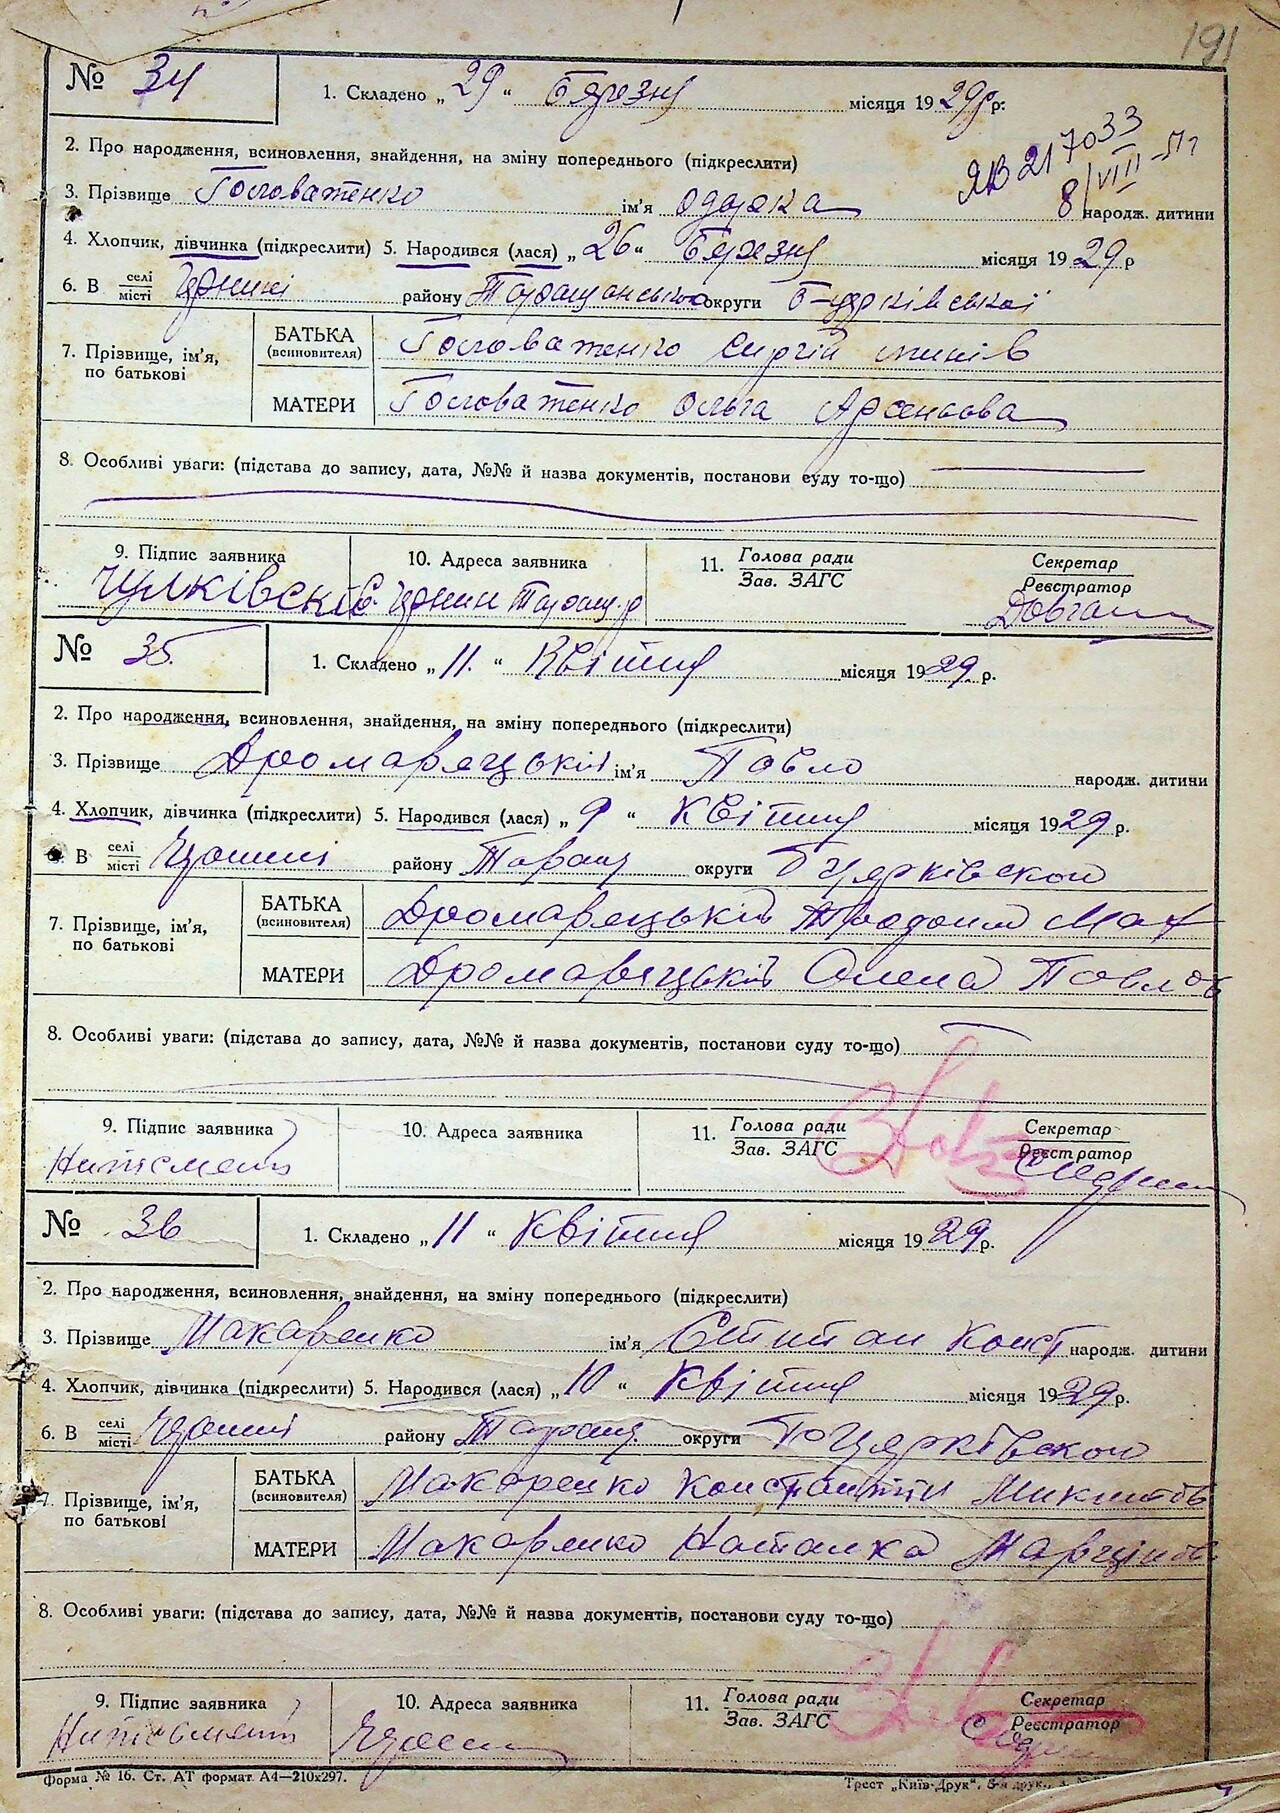 191
№ 34 1. Складено „29“ Березня місяця 1929 р.
ЯВ 217033
8/VIII-51 г
2. Про народження, всиновлення, знайдення, на зміну попереднього (підкреслити)
3. Прізвище Головатенко ім’я Одарка народж. дитини
4. Хлопчик, дівчинка (підкреслити) 5. Народився (лася) „26“ Березня місяця 1929 р
6. В селі місті району Таращанського округи Б-церківської
7. Прізвище, ім’я, по батькові
БАТЬКА (всиновителя) Головатенко Сиргій
МАТЕРИ Головатенко Ольга Арсеньова
8. Особливі уваги: (підстава до запису, дата, №№ й назва документів, постанови суду то-що)
9. Підпис заявника 10. Адреса заявника 11. Голова ради Зав. ЗАГС Секретар Реєстратор
с. Таращ. р
№ 35 1. Складено „11“ Квітня місяця 1929 р.
2. Про народження, всиновлення, знайдення, на зміну попереднього (підкреслити)
3. Прізвище Дромарецький ім’я Повло народж. дитини
4. Хлопчик, дівчинка (підкреслити) 5. Народився (лася) „9“ Квітня місяця 1929 р.
В селі місті району Таращ округи Бцерківскою
7. Прізвище, ім’я, по батькові
БАТЬКА (всиновителя) Дромарецький
МАТЕРИ Дромарецькій Олена Повлов
8. Особливі уваги: (підстава до запису, дата, №№ й назва документів, постанови суду то-що)
9. Підпис заявника 10. Адреса заявника 11. Голова ради Зав. ЗАГС Секретар Реєстратор
Неписмений
№ 36 1. Складено „11“ Квітня місяця 1929 р.
2. Про народження, всиновлення, знайдення, на зміну попереднього (підкреслити)
3. Прізвище Макаренко ім’я Степан Конст народж. дитини
4. Хлопчик, дівчинка (підкреслити) 5. Народився (лася) „10“ Квітня місяця 1929 р.
6. В селі місті району Таращ. округи Бцерківского
7. Прізвище, ім’я, по батькові
БАТЬКА (всиновителя) Макаренко Констянтин Микитов
МАТЕРИ Макаренко Наталка
8. Особливі уваги: (підстава до запису, дата, №№ й назва документів, постанови суду то-що)
9. Підпис заявника 10. Адреса заявника 11. Голова ради Зав. ЗАГС Секретар Реєстратор
Неписмений
Форма № 16. Ст. АТ формат А4—210х297. Трест „Київ-Друк“,